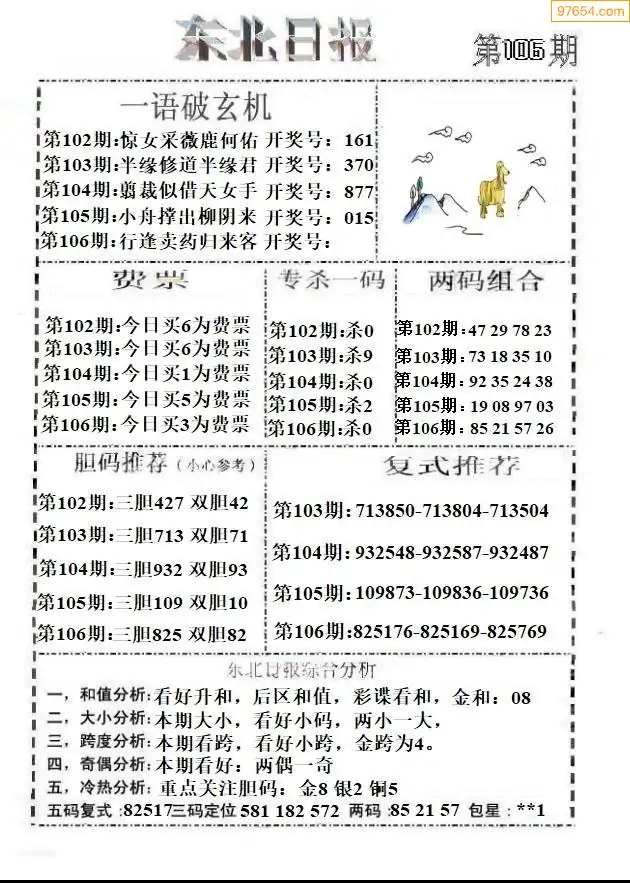 97654.com
东北日报
第106期
一语破玄机
第102期:惊女采薇鹿何佑 开奖号: 161
第103期:半缘修道半缘君 开奖号: 370
第104期:翦裁似借天女手 开奖号: 877
第105期:小舟撑出柳阴来 开奖号: 015
第106期:行逢卖药归来客 开奖号:
费票
第102期:今日买6为费票
第103期:今日买6为费票
第104期:今日买1为费票
第105期:今日买5为费票
第106期:今日买3为费票
专杀一码
第102期:杀0
第103期:杀9
第104期:杀0
第105期:杀2
第106期:杀0
两码组合
第102期:47 29 78 23
第103期:73 18 35 10
第104期:92 35 24 38
第105期:19 08 97 03
第106期:85 21 57 26
胆码推荐(小心参考)
第102期:三胆427 双胆42
第103期:三胆713 双胆71
第104期:三胆932 双胆93
第105期:三胆109 双胆10
第106期:三胆825 双胆82
复式推荐
第103期:713850-713804-713504
第104期:932548-932587-932487
第105期:109873-109836-109736
第106期:825176-825169-825769
东北日报综合分析
一,和值分析:看好升和,后区和值,彩谍看和,金和:08
二,大小分析:本期大小,看好小码,两小一大,
三,跨度分析:本期看跨,看好小跨,金跨为4。
四,奇偶分析:本期看好:两偶一奇
五,冷热分析:重点关注胆码:金8 银2 铜5
五码复式:82517三码定位 581 182 572 两码:85 21 57 包星:**1